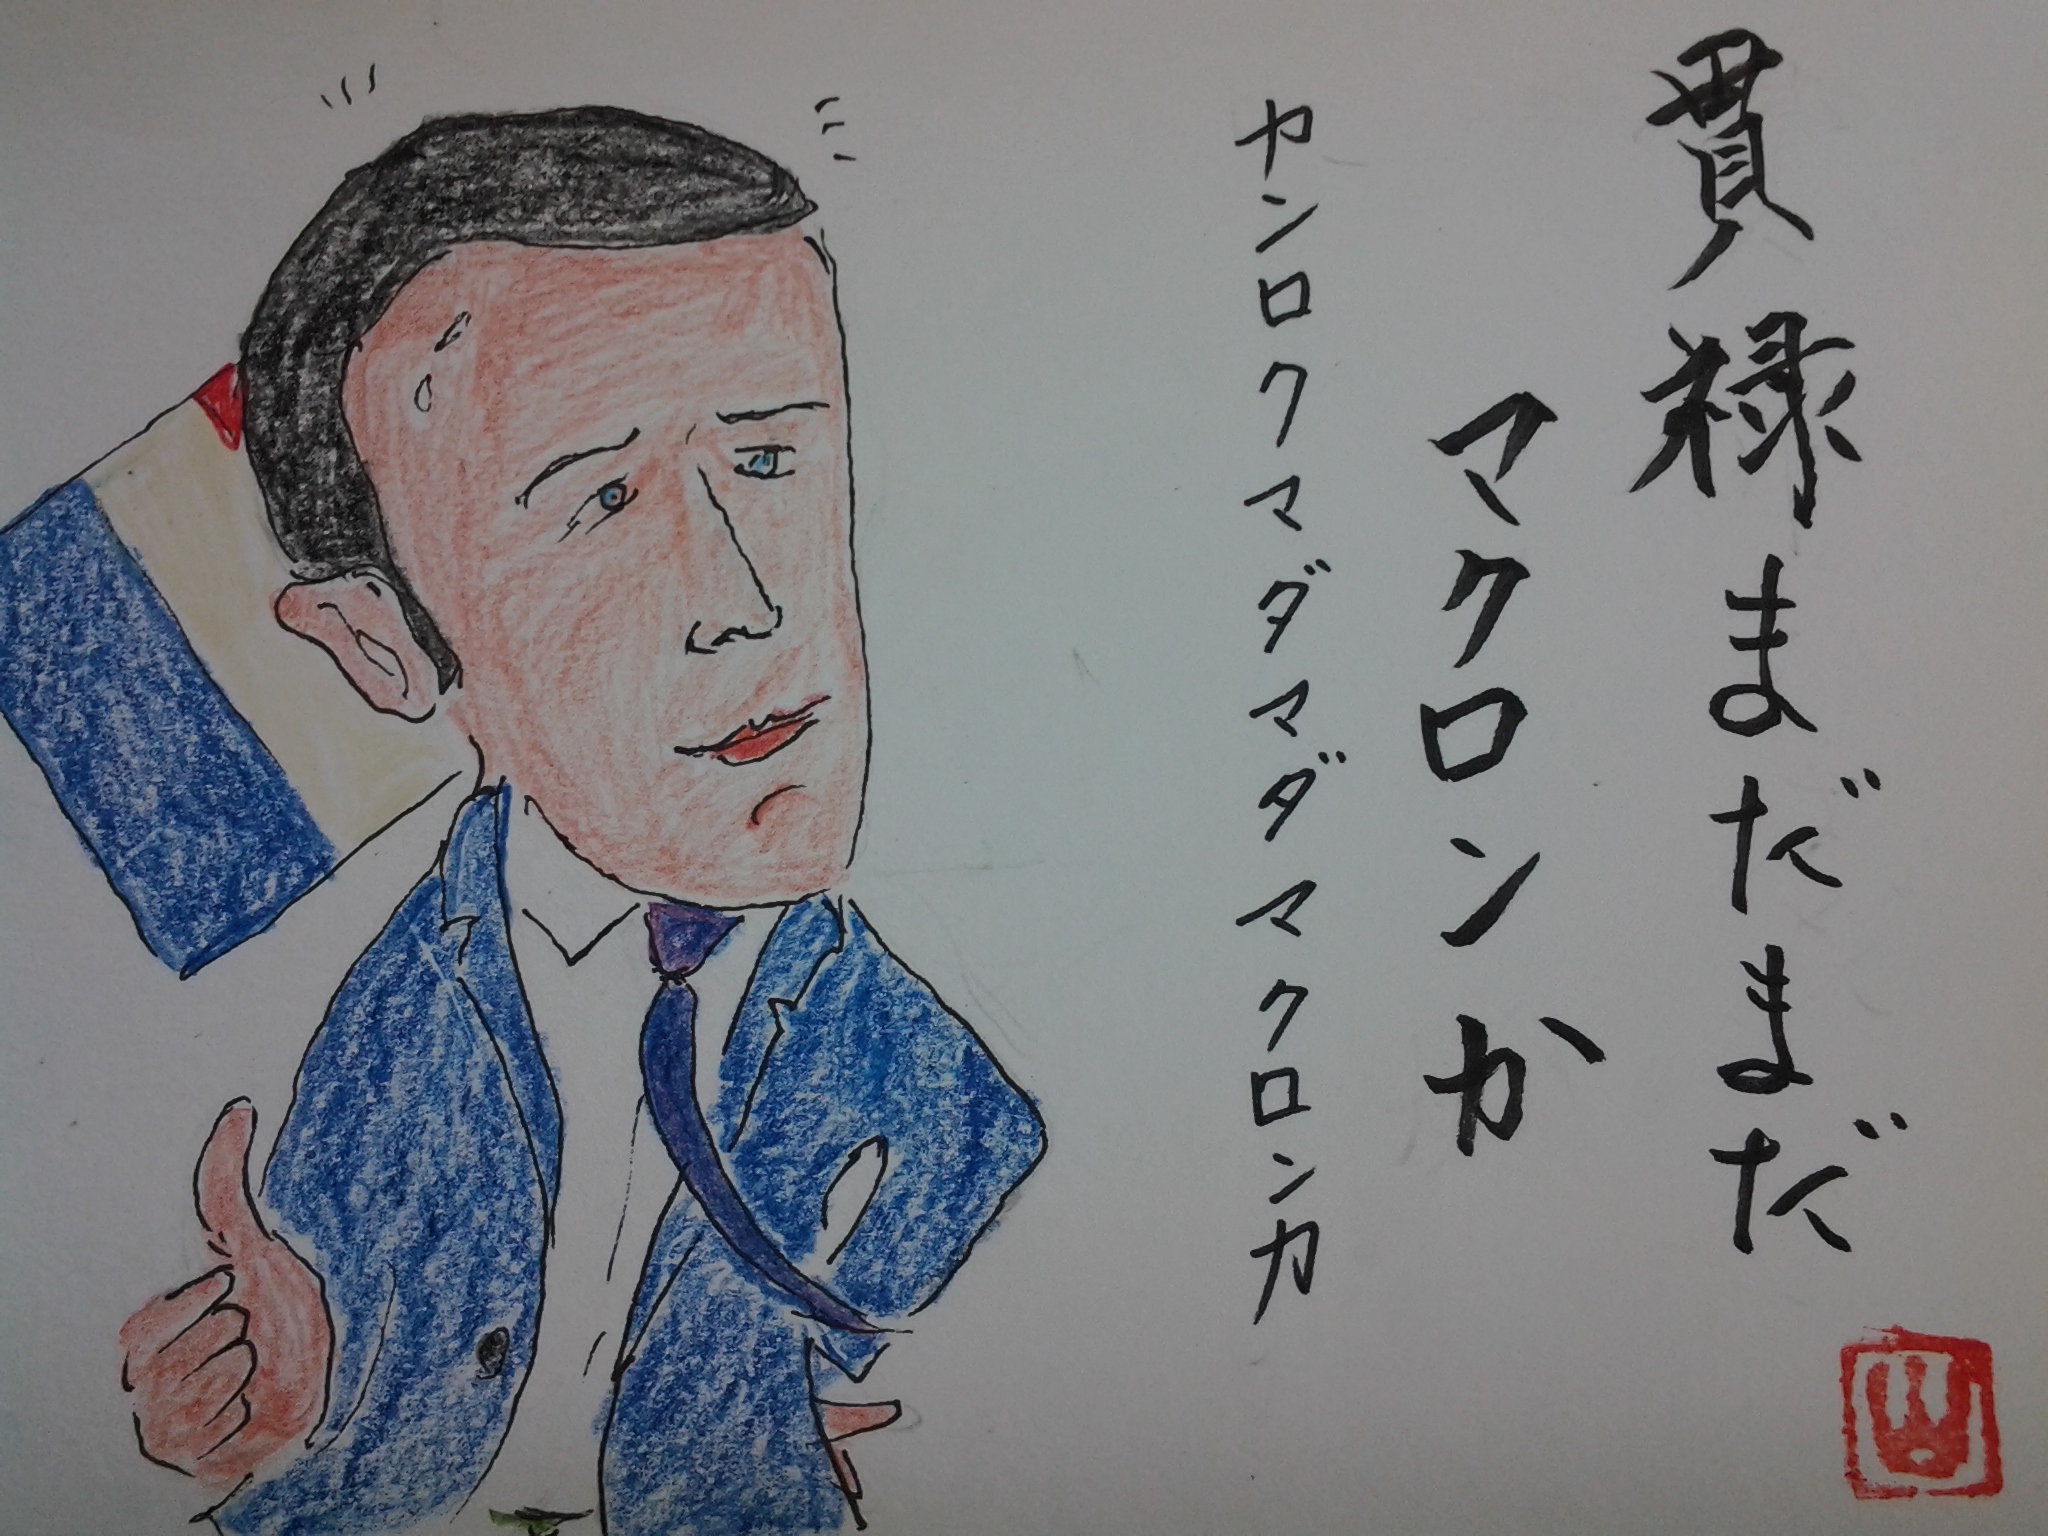 貫禄まだまだ
マクロンか
カンロクマダマダマクロンカ